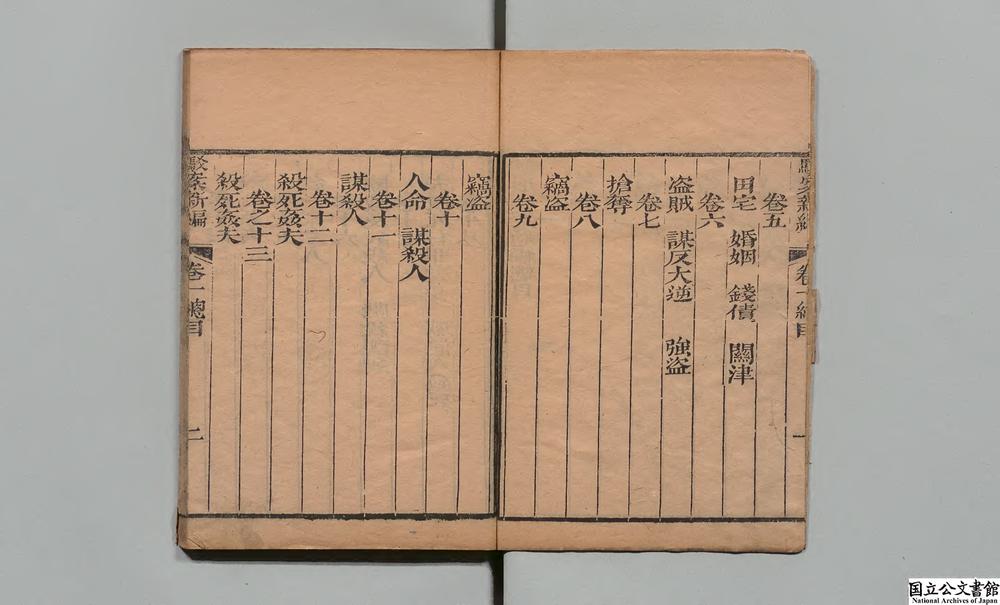 卷五
田宅 婚姻 錢債 關津
卷六
盗賊 謀反大逆 強盗
卷七
搶奪
卷八
竊盗
卷九
竊盗
卷十
人命 謀殺人
卷十一
謀殺人
卷十二
殺死姦夫
卷之十三
殺死姦夫
駁案新編 卷一總目 二
国立公文書館
National Archives of Japan